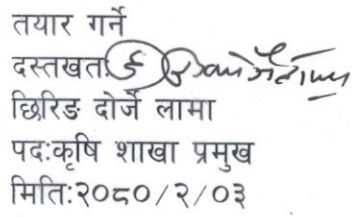 तयार गर्ने
दस्तखतः
छिरिङ दोर्जे लामा
पदःकृषि शाखा प्रमुख
मितिः२०८०/२/०३